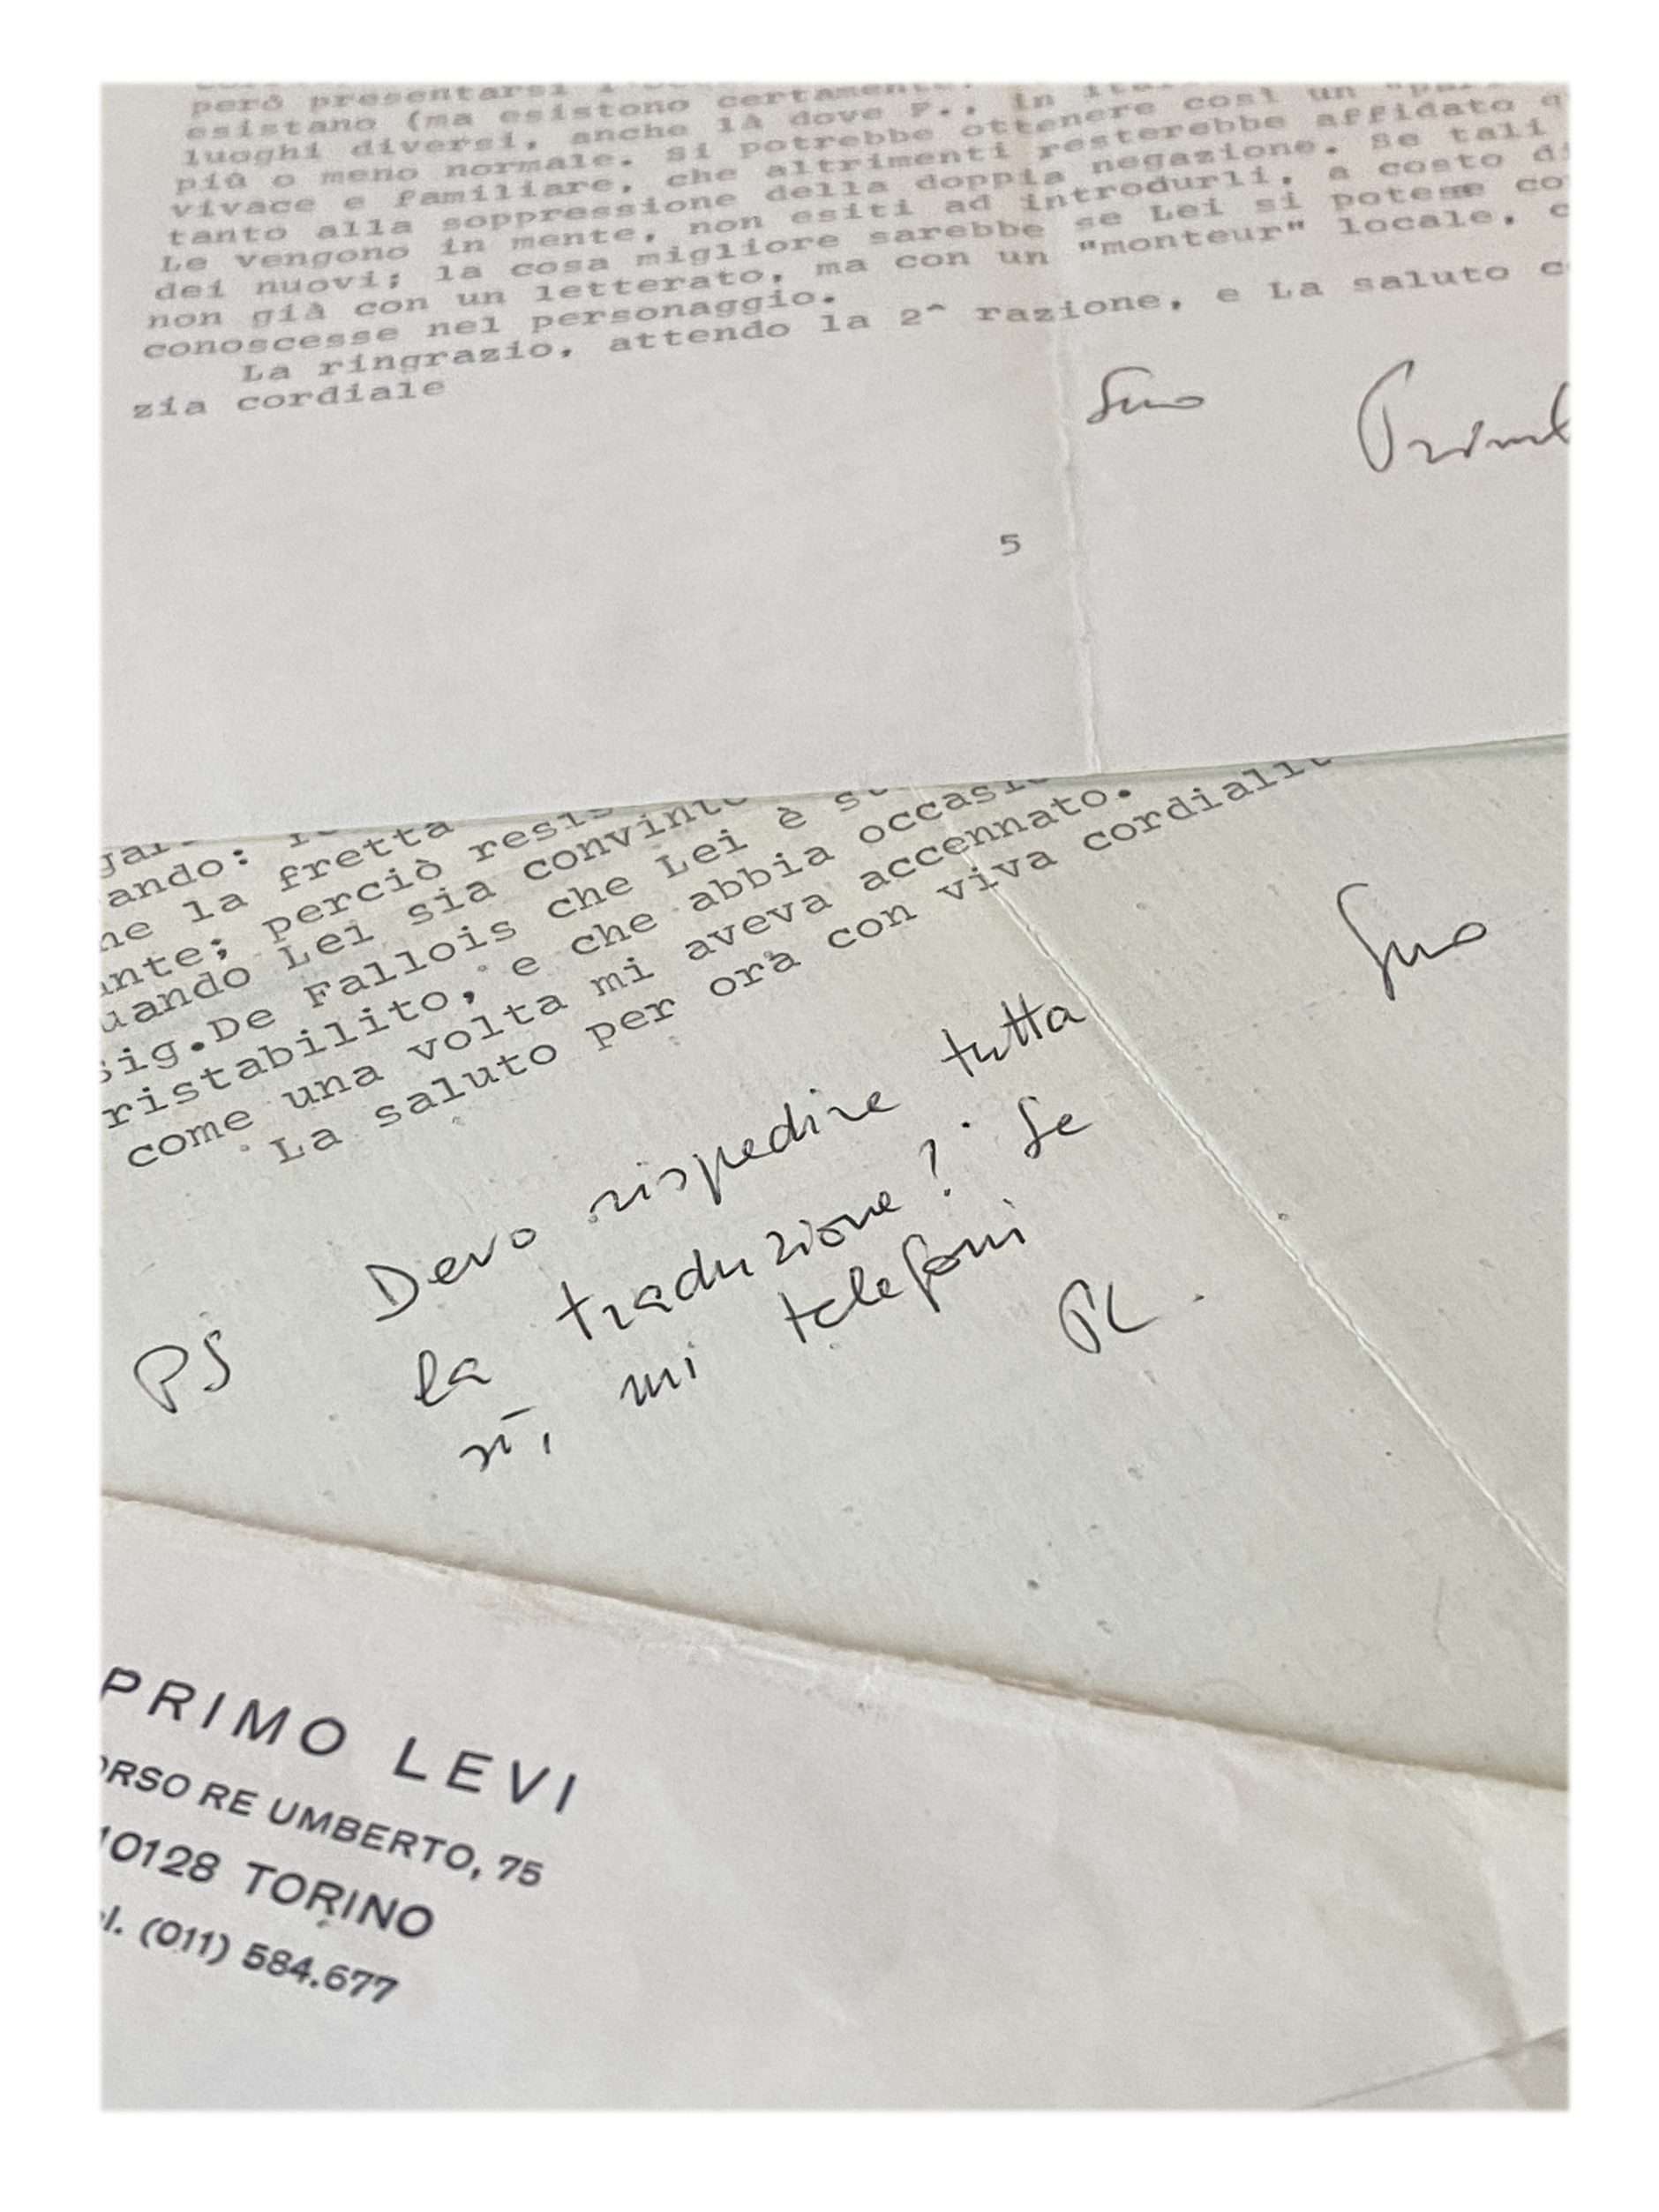 però presentarsi
esistano (ma esistono certamente
luoghi diversi, anche là dove P., in
più o meno normale. Si potrebbe ottenere così un
vivace e familiare, che altrimenti resterebbe affidato
tanto alla soppressione della doppia negazione. Se tali
Le vengono in mente, non esiti ad introdurli, a costo
dei nuovi; la cosa migliore sarebbe se Lei si potesse
non già con un letterato, ma con un "monteur" locale,
conoscesse nel personaggio.
La ringrazio, attendo la 2^ razione, e La saluto
zia cordiale
Suo Primo
5
ando:
ne la fretta
ante; perciò
uando Lei sia
sig.De Fallois che Lei è
ristabilito, e che abbia
come una volta mi aveva accennato.
La saluto per ora con viva
Suo
PS Devo rispedire tutta
la traduzione? Se
sì, mi telefoni
PL.
PRIMO LEVI
ORSO RE UMBERTO, 75
10128 TORINO
el. (011) 584.677